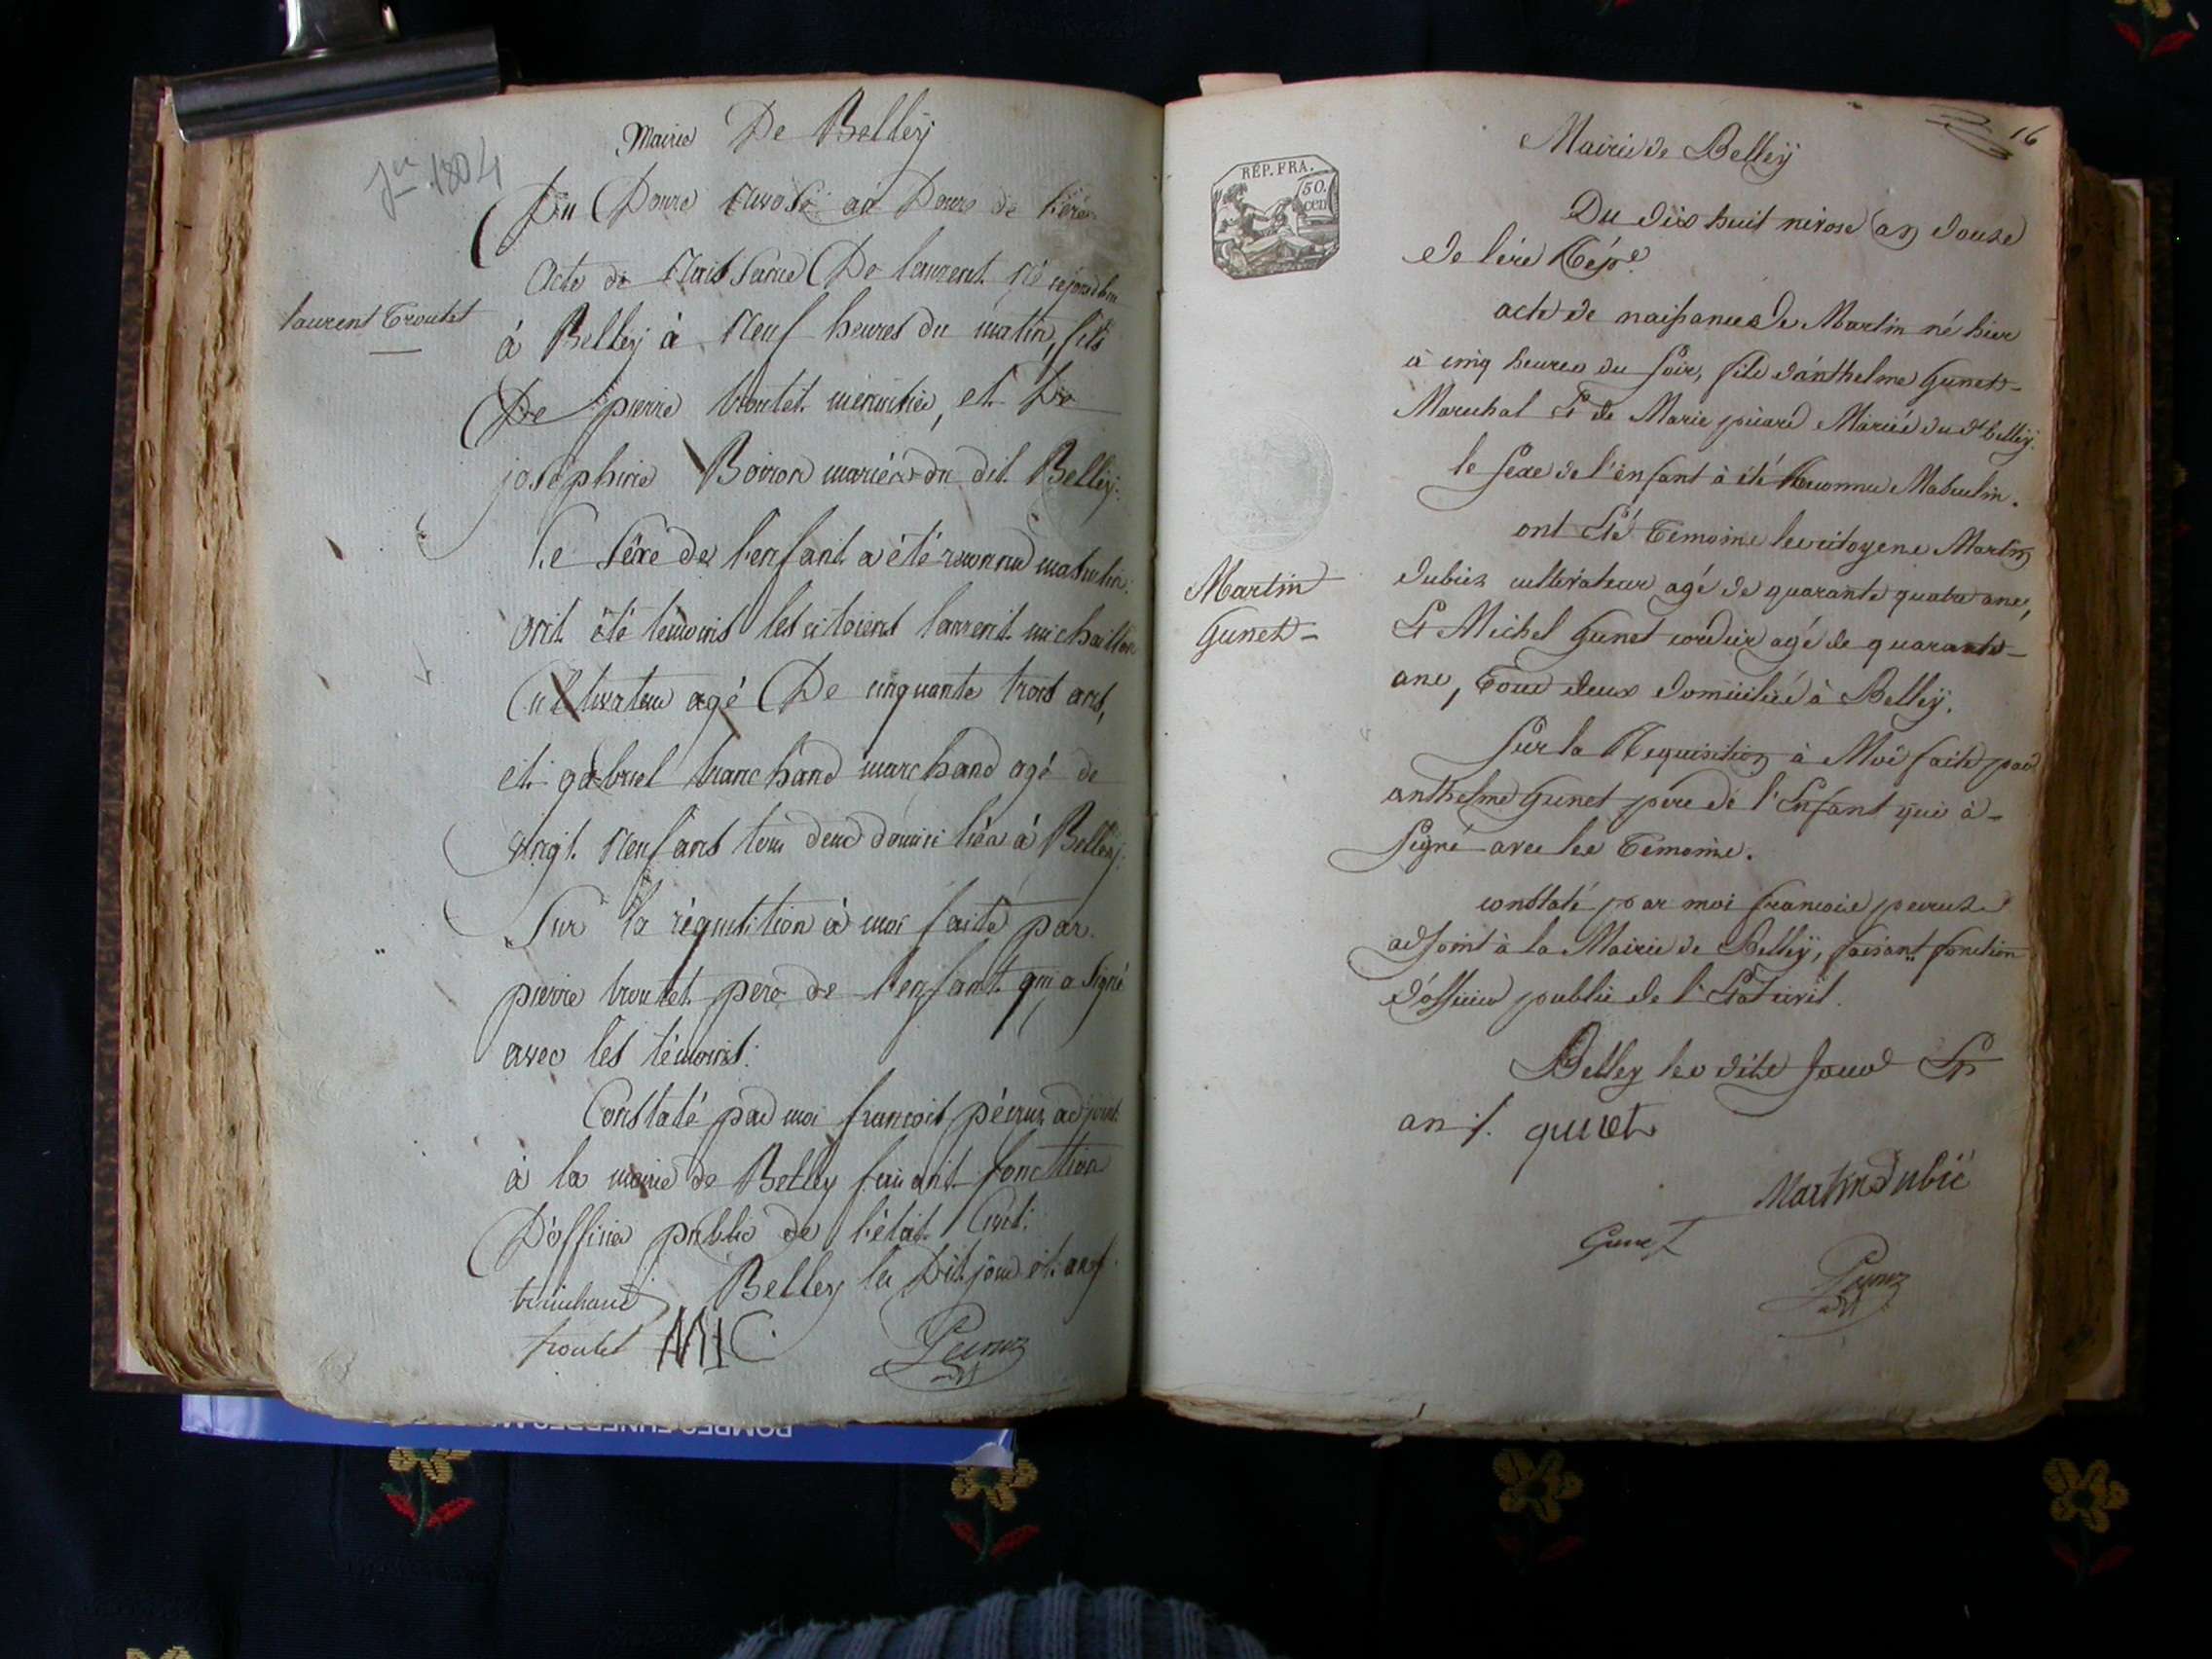 Jer 1804
Mairie De Belleÿ
Du Douze nivose an Douze de l'ère
Acte de Naissance De laurent né cejourdhui
laurent Troutet
à Belleÿ à Neuf heures du matin, fils
De pierre troutet menuisier, et De
joséphine Boiron mariés du dit Belleÿ.
le sèxe de l'enfant a été reconnu masculin.
ont été temoins les citoiens laurent michaillon
Cultivateur agé De cinquante trois ans,
et gabriel tranchand marchand agé de
vingt neuf ans tous deux domiciliés à Belleÿ.
Sur la réquisition à moi faite par
pierre troutet pere de l'enfant qui a signé
avec les témoins.
Constaté par moi françois péeruz adjoint
à la mairie de Belleÿ faisant fonction
D'officier public de l'état Civil.
Belleÿ les Dit jour et an ./.
tranchand
troutet MIC Peeruz
adjt
16
Mairie de Belleÿ
RÉP. FRA.
50.
cen
Du dix huit nivose an douze
de l'ère Répe.
acte de naissance de Martin né hier
à cinq heures du soir, fils d'anthelme Gunet
Marechal Et de Marie picard Mariés du dt belleÿ.
le sexe de l'enfant à été Reconnu Masculin.
ont Eté Temoins les citoyens Martin
dubiez cultivateur agé de quarante quatre ans,
Martin
Gunet
Et Michel Gunet cordier agé de quarante
ans, Tous deux domiciliés à Belleÿ.
Sur la Requisition à Moi faite par
anthelme Gunet père de l'Enfant qui à
signé avec les Temoins.
constaté par moi francois peeruz
adjoint à la Mairie de Belleÿ, faisant fonction
d'officier public de l'Etat civil.
Belley les dits Jour Et
an ./. gunet
Martin dubié
Gunet
Peeruz
adjt
POMPES FUNEBRES